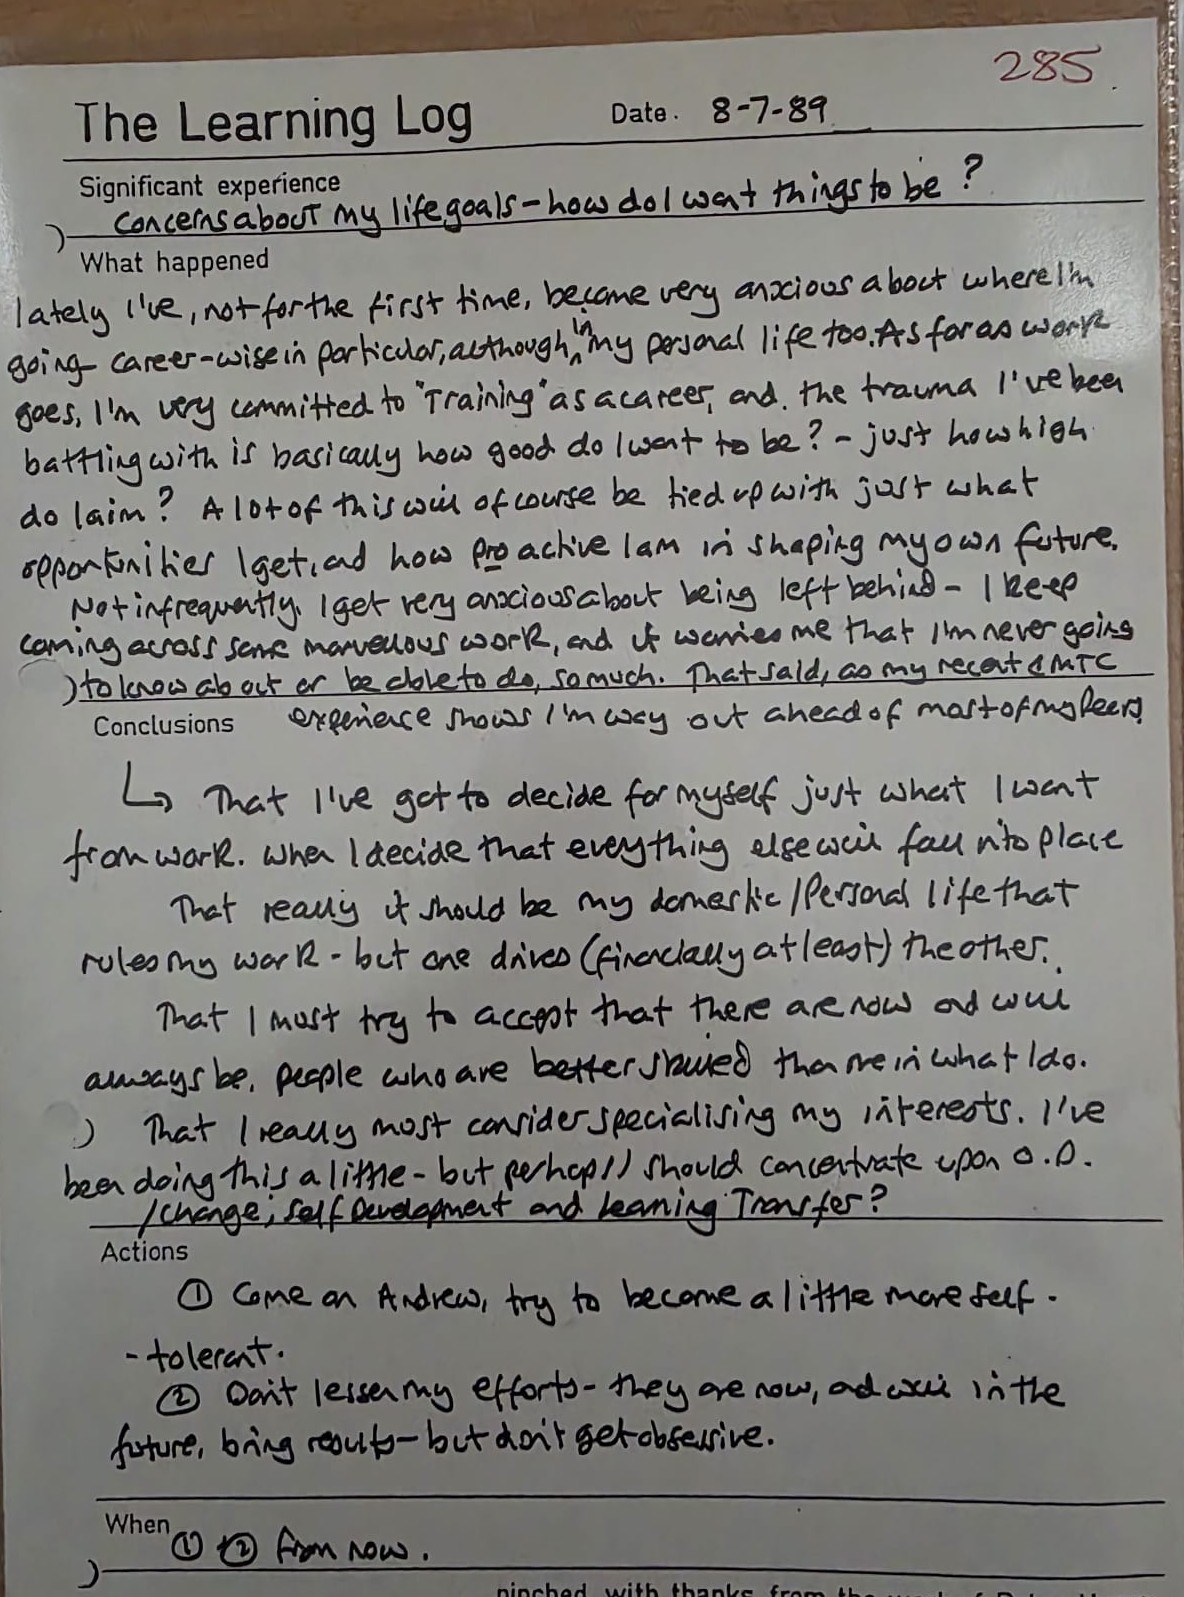 285
The Learning Log Date. 8-7-89
Significant experience
Concerns about my life goals - how do I want things to be?
What happened
lately I've, not for the first time, become very anxious about where I'm
going career-wise in particular, although, in my personal life too. As far as work
goes, I'm very committed to "Training" as a career, and the trauma I've been
battling with is basically how good do I want to be? - just how high
do I aim? A lot of this will of course be tied up with just what
opportunities I get, and how pro active I am in shaping my own future.
Not infrequently, I get very anxious about being left behind - I keep
coming across some marvellous work, and it worries me that I'm never going
to know about or be able to do, so much. That said, as my recent MTC
Conclusions experience shows I'm way out ahead of most of my Peers.
↳ That I've got to decide for myself just what I want
from work. When I decide that everything else will fall into place
That really it should be my domestic/Personal life that
rules my work - but one drives (financially at least) the other.
That I must try to accept that there are now and will
always be, people who are better skilled than me in what I do.
That I really must consider specialising my interests. I've
been doing this a little - but perhaps I should concentrate upon O.D.
/change; Self Development and Learning Transfer?
Actions
① Come on Andrew, try to become a little more self-
-tolerant.
② Don't lessen my efforts - they are now, and will in the
future, bring results - but don't get obsessive.
When
① + ② from now.
pinched with thanks from the work of